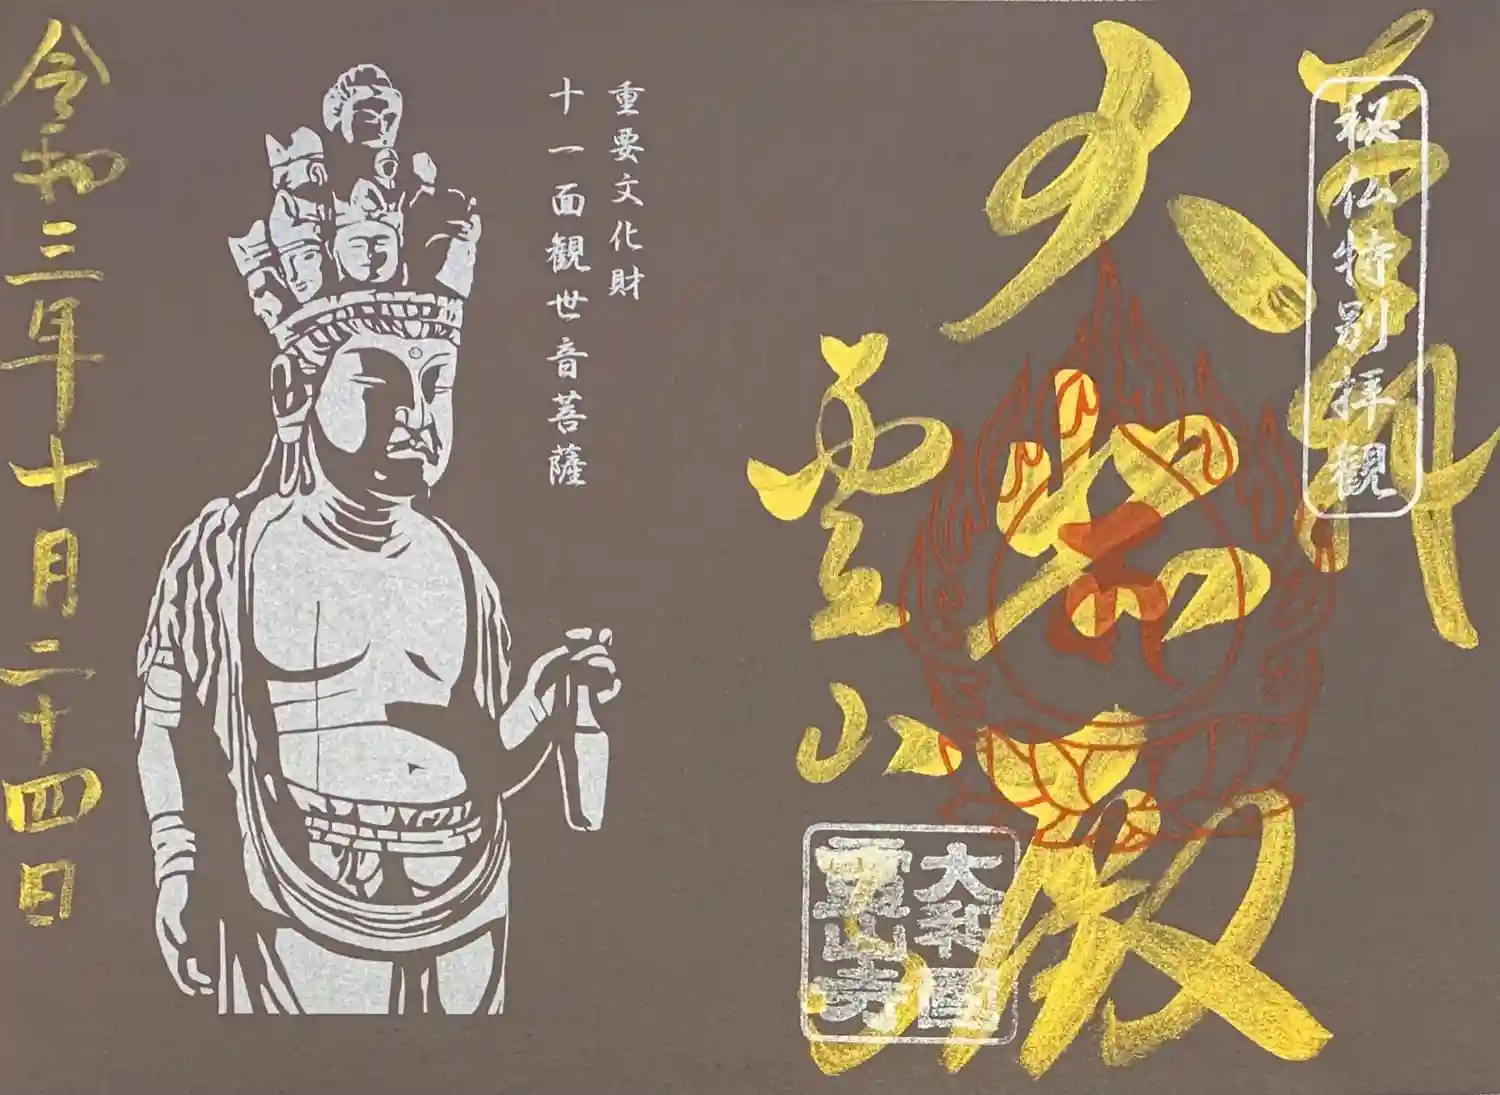 秘仏特別拝観
霊山寺
大和国
霊山寺
重要文化財
十一面観世音菩薩
令和三年十月二十四日